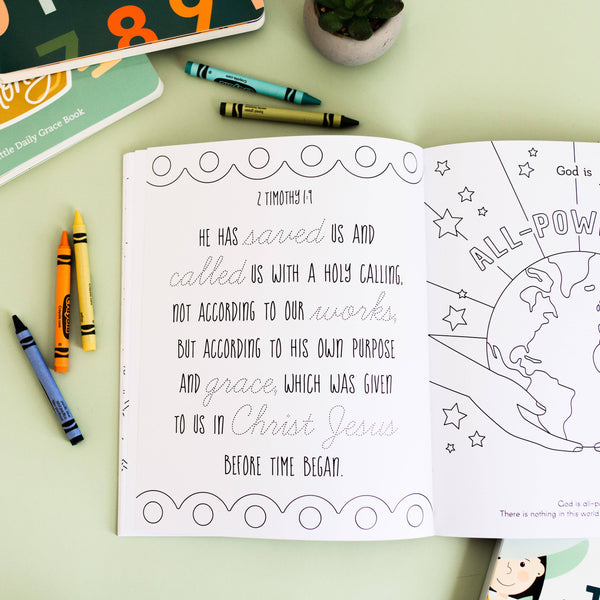 7 8 9
ttle Daily Grace Book
2 TIMOTHY 1:9
HE HAS saved US AND
called US WITH A HOLY CALLING,
NOT ACCORDING TO OUR works,
BUT ACCORDING TO HIS OWN PURPOSE
AND grace, WHICH WAS GIVEN
TO US IN Christ Jesus
BEFORE TIME BEGAN.
God is
ALL-POW
God is all-po
There is nothing in this world